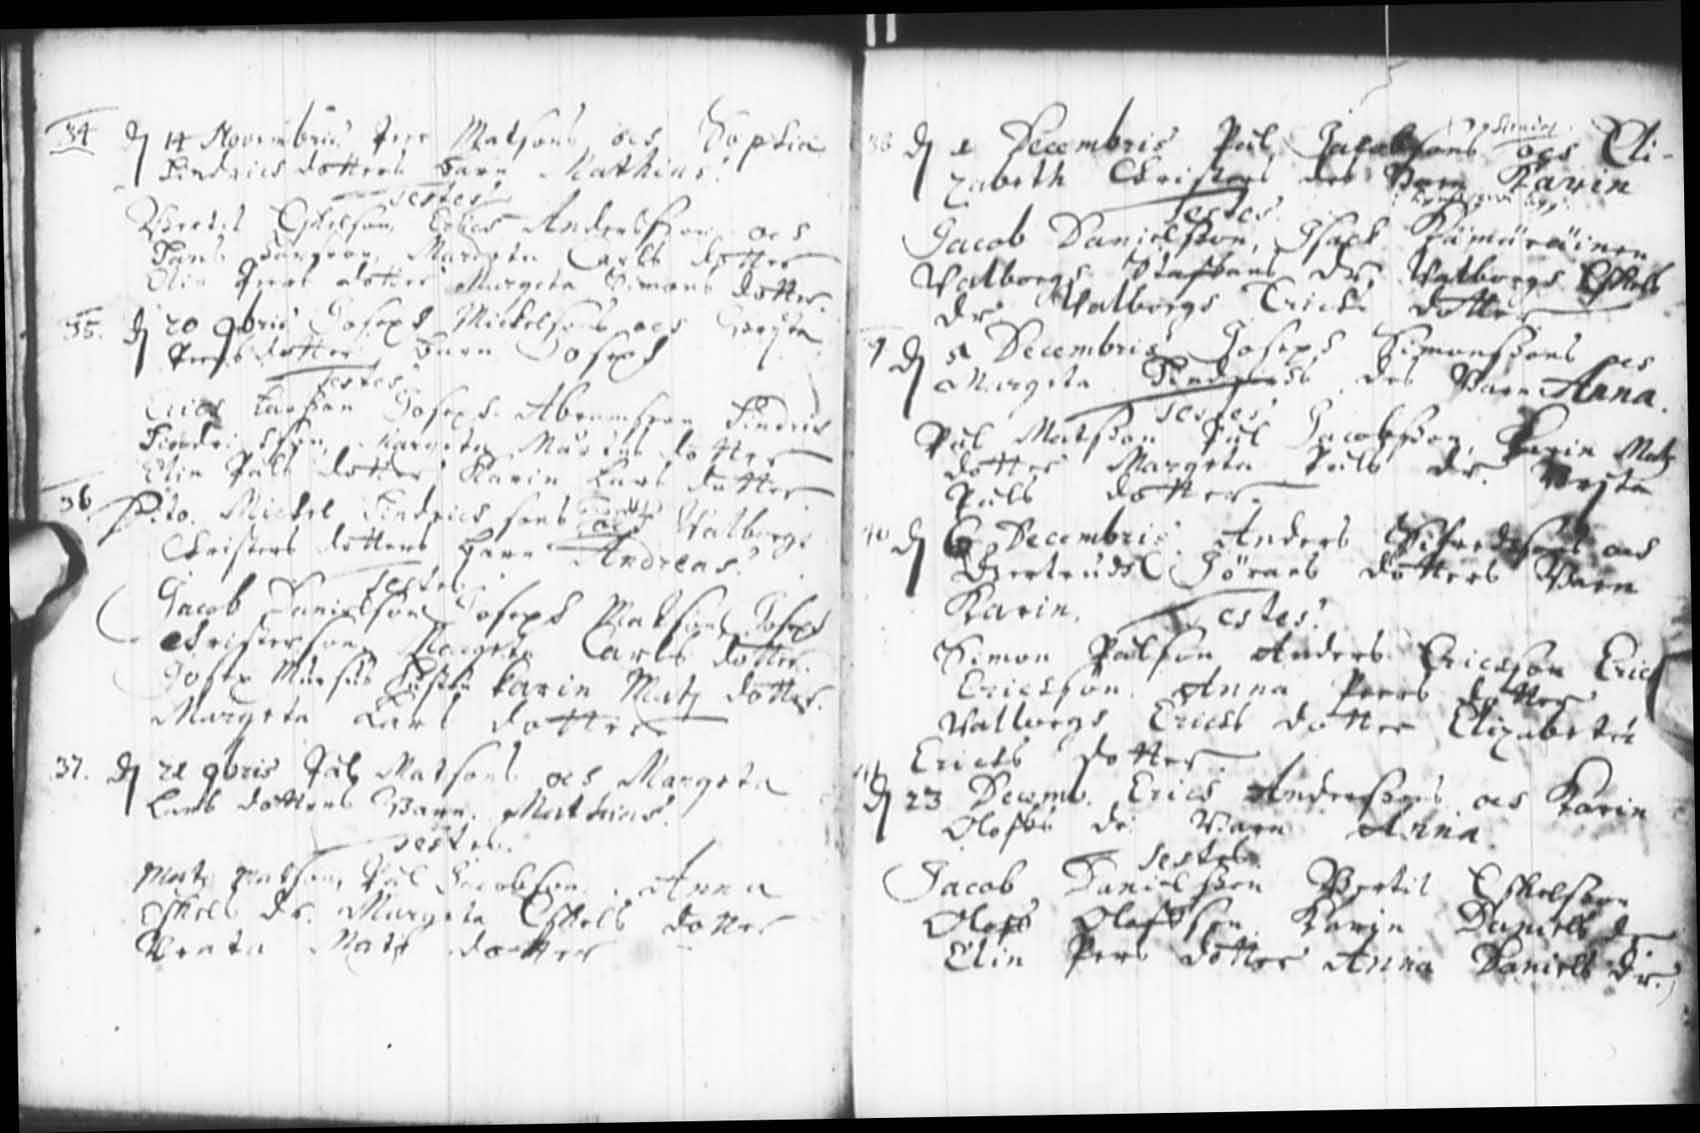 34 d 14 Novembris Peer Matsons och Sophia
Hindrichs dotters barn Mathias.
Testes
Bertil Eskelson, Erich Andersson och
Margeta Carls dotter
Elin Peers dotter Margeta Simons dotter
35. d 20 9bris Joseph Mickelsons och
Peers dotter barn Joseph
Testes
Erich Larsson Joseph Abramsson Hindrich
Hindrichsson, Margeta Marcus dotter
Elin Påls dotter Karin Lars dotter
36. Dito. Mickel Hindrichsons och Valborgs
Christers dotters barn Andreas.
Testes
Jacob Danielson Joseph Matson, Joseph
Christerson, Margeta Carls dotter.
Josep Marcus Karin Matz dotter.
Margeta Lars dotter
37. d 21 9bris Pål Matsons och Margeta
Lars dotters Barn. Mathias.
Testes.
Matz Matson, Pål Jacobson. Anna
Eskels dr. Margeta Eskels dotter
Beata Mats dotter
38 d 1 Decembris Pål Jacobsons och Eli-
zabeth Christers drs Barn Karin
Testes.
Jacob Danielsson, Hämäräinen
Valborgs Staffans dr, Valborgs Eskels
dr Valborgs Erichs dotter
9 d 5 Decembris Joseph Simonssons och
Margeta drs Barn Anna.
Testes
Pål Matsson Pål Jacobsson, Karin Matz
dotter Margeta Påls dr.
Påls dotter.
40 d 6 Decembris Anders Sifredsons och
Gertruds Görans dotters Barn
Karin. Testes.
Simon Pålson Anders Ericsson Erich
Ericsson. Anna Peers dotter
Valborgs Erichs dotter Elizabeter
Erichs dotter
41 d 23 Decemb. Erichs Anderssons och Karin
Olofs dr Barn Anna.
Testes
Jacob Danielsson Bertil Eskelsson
Olof Olofsson Karin Daniels dr
Elin Pers dotter Anna Daniels dr.